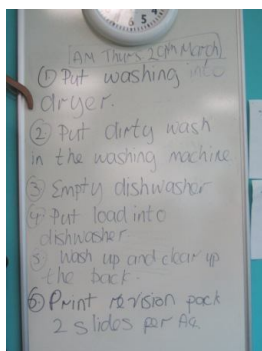 AM Thurs 20th March
① Put washing into
dryer.
② Put dirty wash
in the washing machine
③ Empty dishwasher
④ Put load into
dishwasher.
5 Wash up and clear up
the back.
⑥ Print revision pack
2 slides per A4.